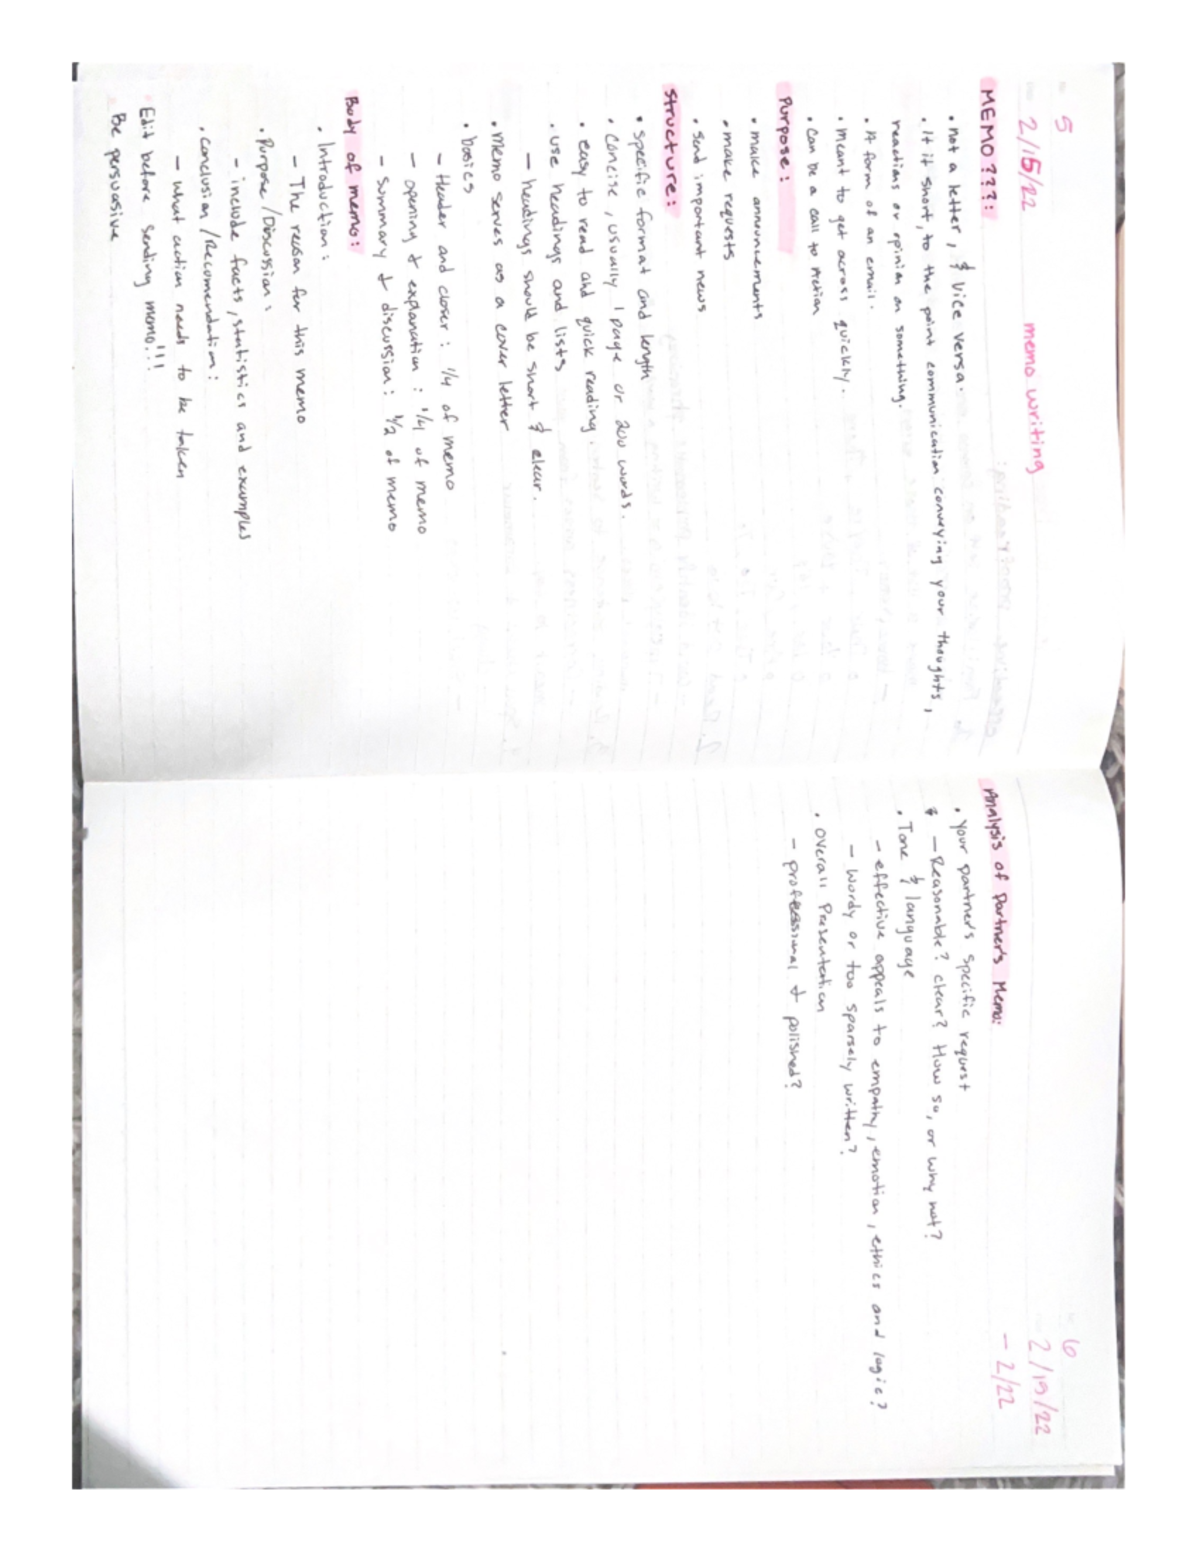 5
2/15/22 memo writing
MEMO???:
• not a letter, & vice versa.
• It it short, to the point communication conveying your thoughts,
reactions or opinion on something.
• A form of an email.
• meant to get across quickly.
• can be a call to Action
Purpose:
• make announcements
• make requests
• send important news
structure:
• specific format and length
• concise, usually 1 page or 200 words.
• easy to read and quick reading.
• use headings and lists
– headings should be short & clear.
• memo serves as a cover letter
• basics
– Header and closer: 1/4 of memo
– opening & explanation: 1/4 of memo
– summary & discussion: 1/2 of memo
Body of memo:
• Introduction:
– The reason for this memo
• Purpose/Discussion:
– include facts, statistics and examples
• conclusion/Recomendation:
– what action needs to be taken
• Edit before sending memo!!!
• Be persuasive
6
2/19/22
– 2/22
Analysis of Partner's Memo:
• Your partner's specific request
– Reasonable? clear? How so, or why not?
• Tone & language
– effective appeals to empathy, emotion, ethics and logic?
– wordy or too sparsely written?
• overall Presentation
– professional & polished?